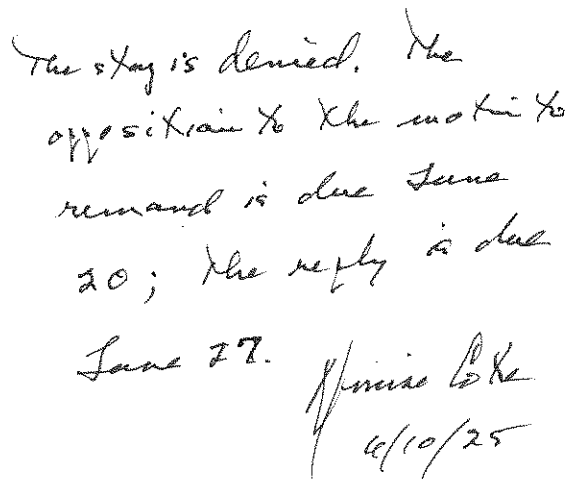 The stay is denied. The
opposition to the motion to
remand is due June
20; the reply is due
June 27.
Denise Cote
6/10/25